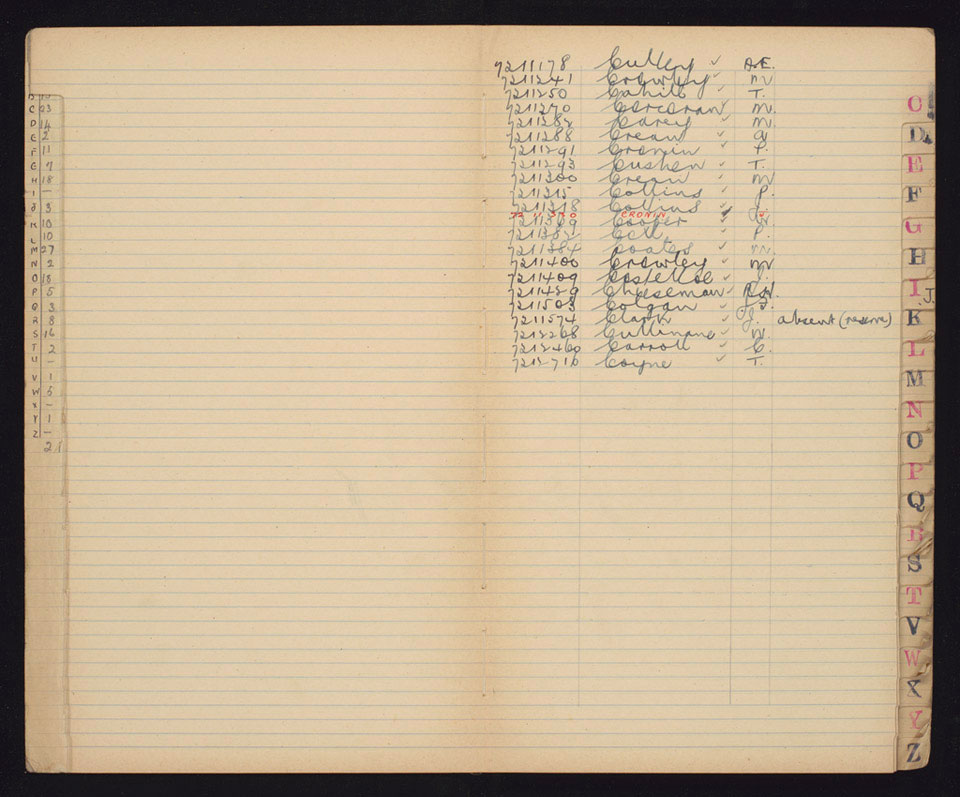 B
C 23
D 14
E 2
F 11
G 7
H 18
I –
J 3
K 10
L 10
M 27
N 2
O 18
P 5
Q 3
R 8
S 16
T 2
U –
V 1
W 5
X –
Y 1
Z –
21
7211178 Culley ✓ A.E.
7211241 Crowley ✓ M
7211250 Cahill ✓ T.
7211270 Corcoran ✓ M.
7211282 Carey ✓ M.
7211288 Crean ✓
7211291 Cronin ✓
7211293 Cushen ✓ T.
7211300 Crean ✓ M
7211315 Collins ✓ P.
7211318 Collins ✓
CRONIN ✓
7211369 Cooper ✓
7211381 ✓ P.
7211384 Coates ✓ M.
7211400 Crowley ✓ M
7211409 Costelloe ✓ J.
7211429 Cheeseman ✓ R.W.
7211503 Colgan ✓ J.
7211574 Clark ✓ J. absent (reserve)
7212268 Cullinane ✓ W.
7212460 Carroll ✓ C.
7212710 Coyne ✓ T.
C
D
E
F
G
H
I J.
K
L
M
N
O
P
Q
R
S
T
V
W
X
Y
Z